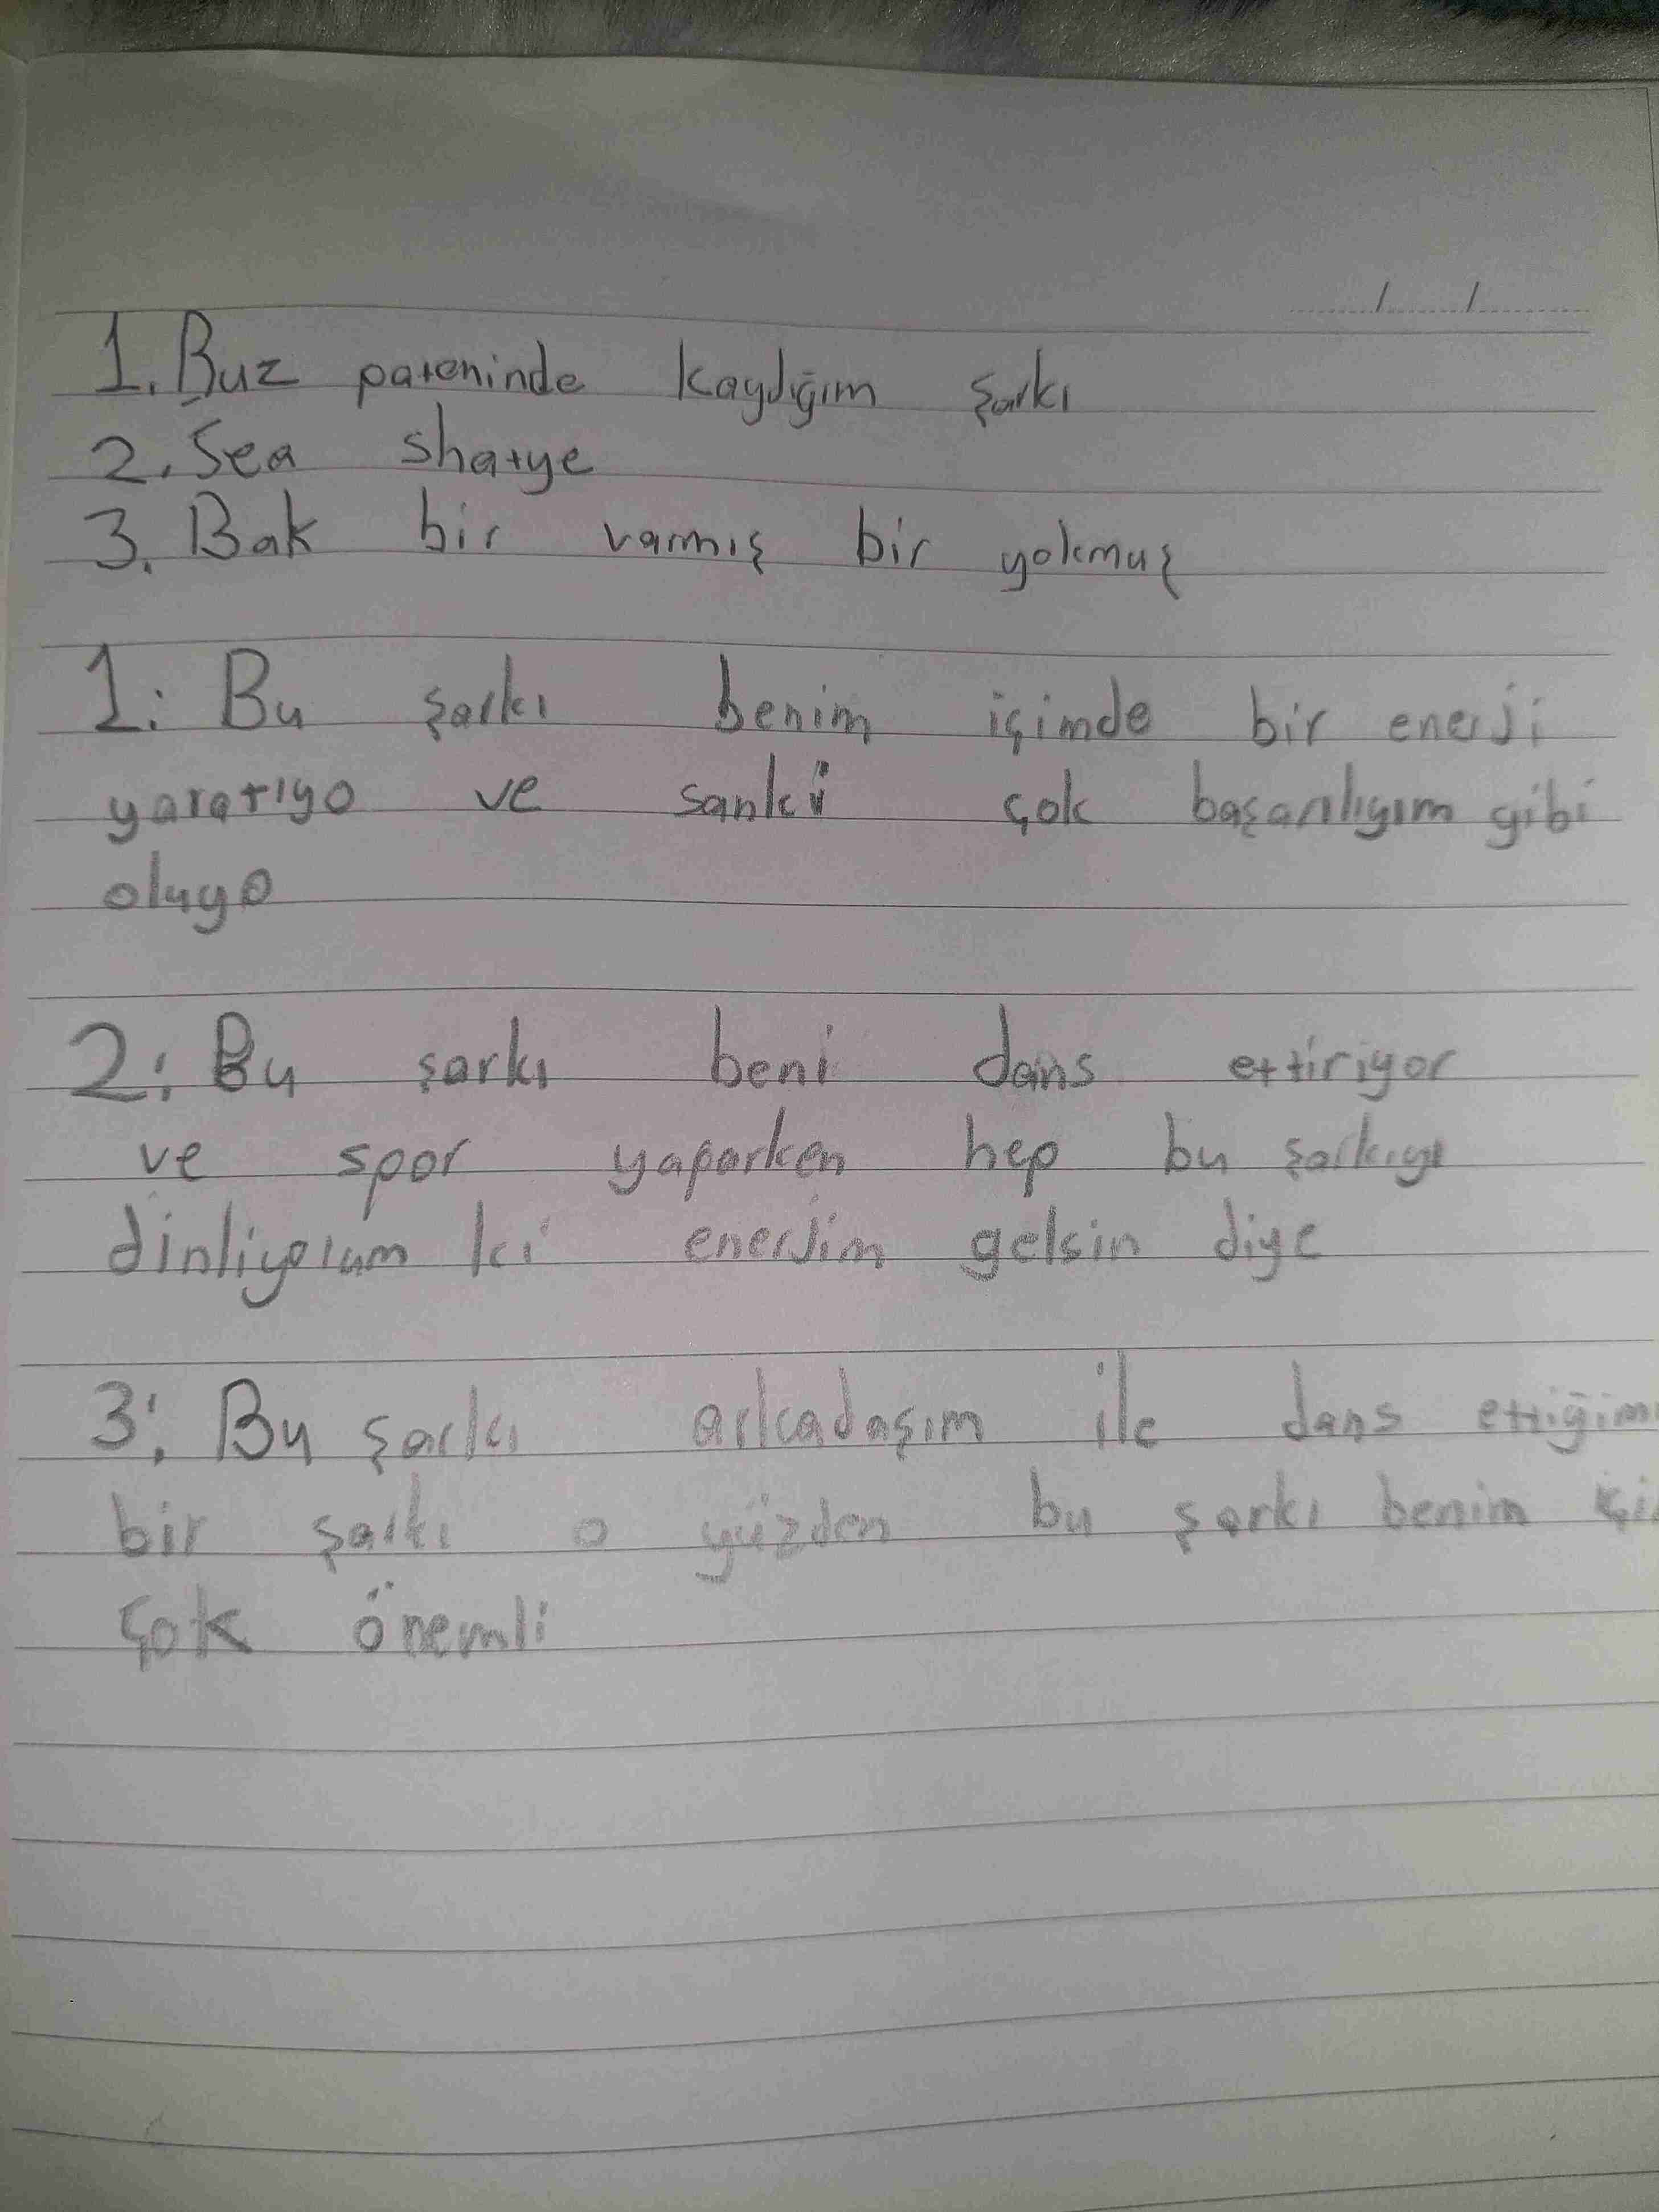 1. Buz pateninde kaydığım şarkı
2. Sea shatye
3. Bak bir varmış bir yokmuş
1: Bu şarkı benim içimde bir enerji
yaratıyo ve sanki çok başarılıyım gibi
oluyo
2: Bu şarkı beni dans ettiriyor
ve spor yaparken hep bu şarkıyı
dinliyorum ki enerjim gelsin diye
3: Bu şarkı arkadaşım ile dans ettiğim
bir şarkı o yüzden bu şarkı benim içi
çok önemli